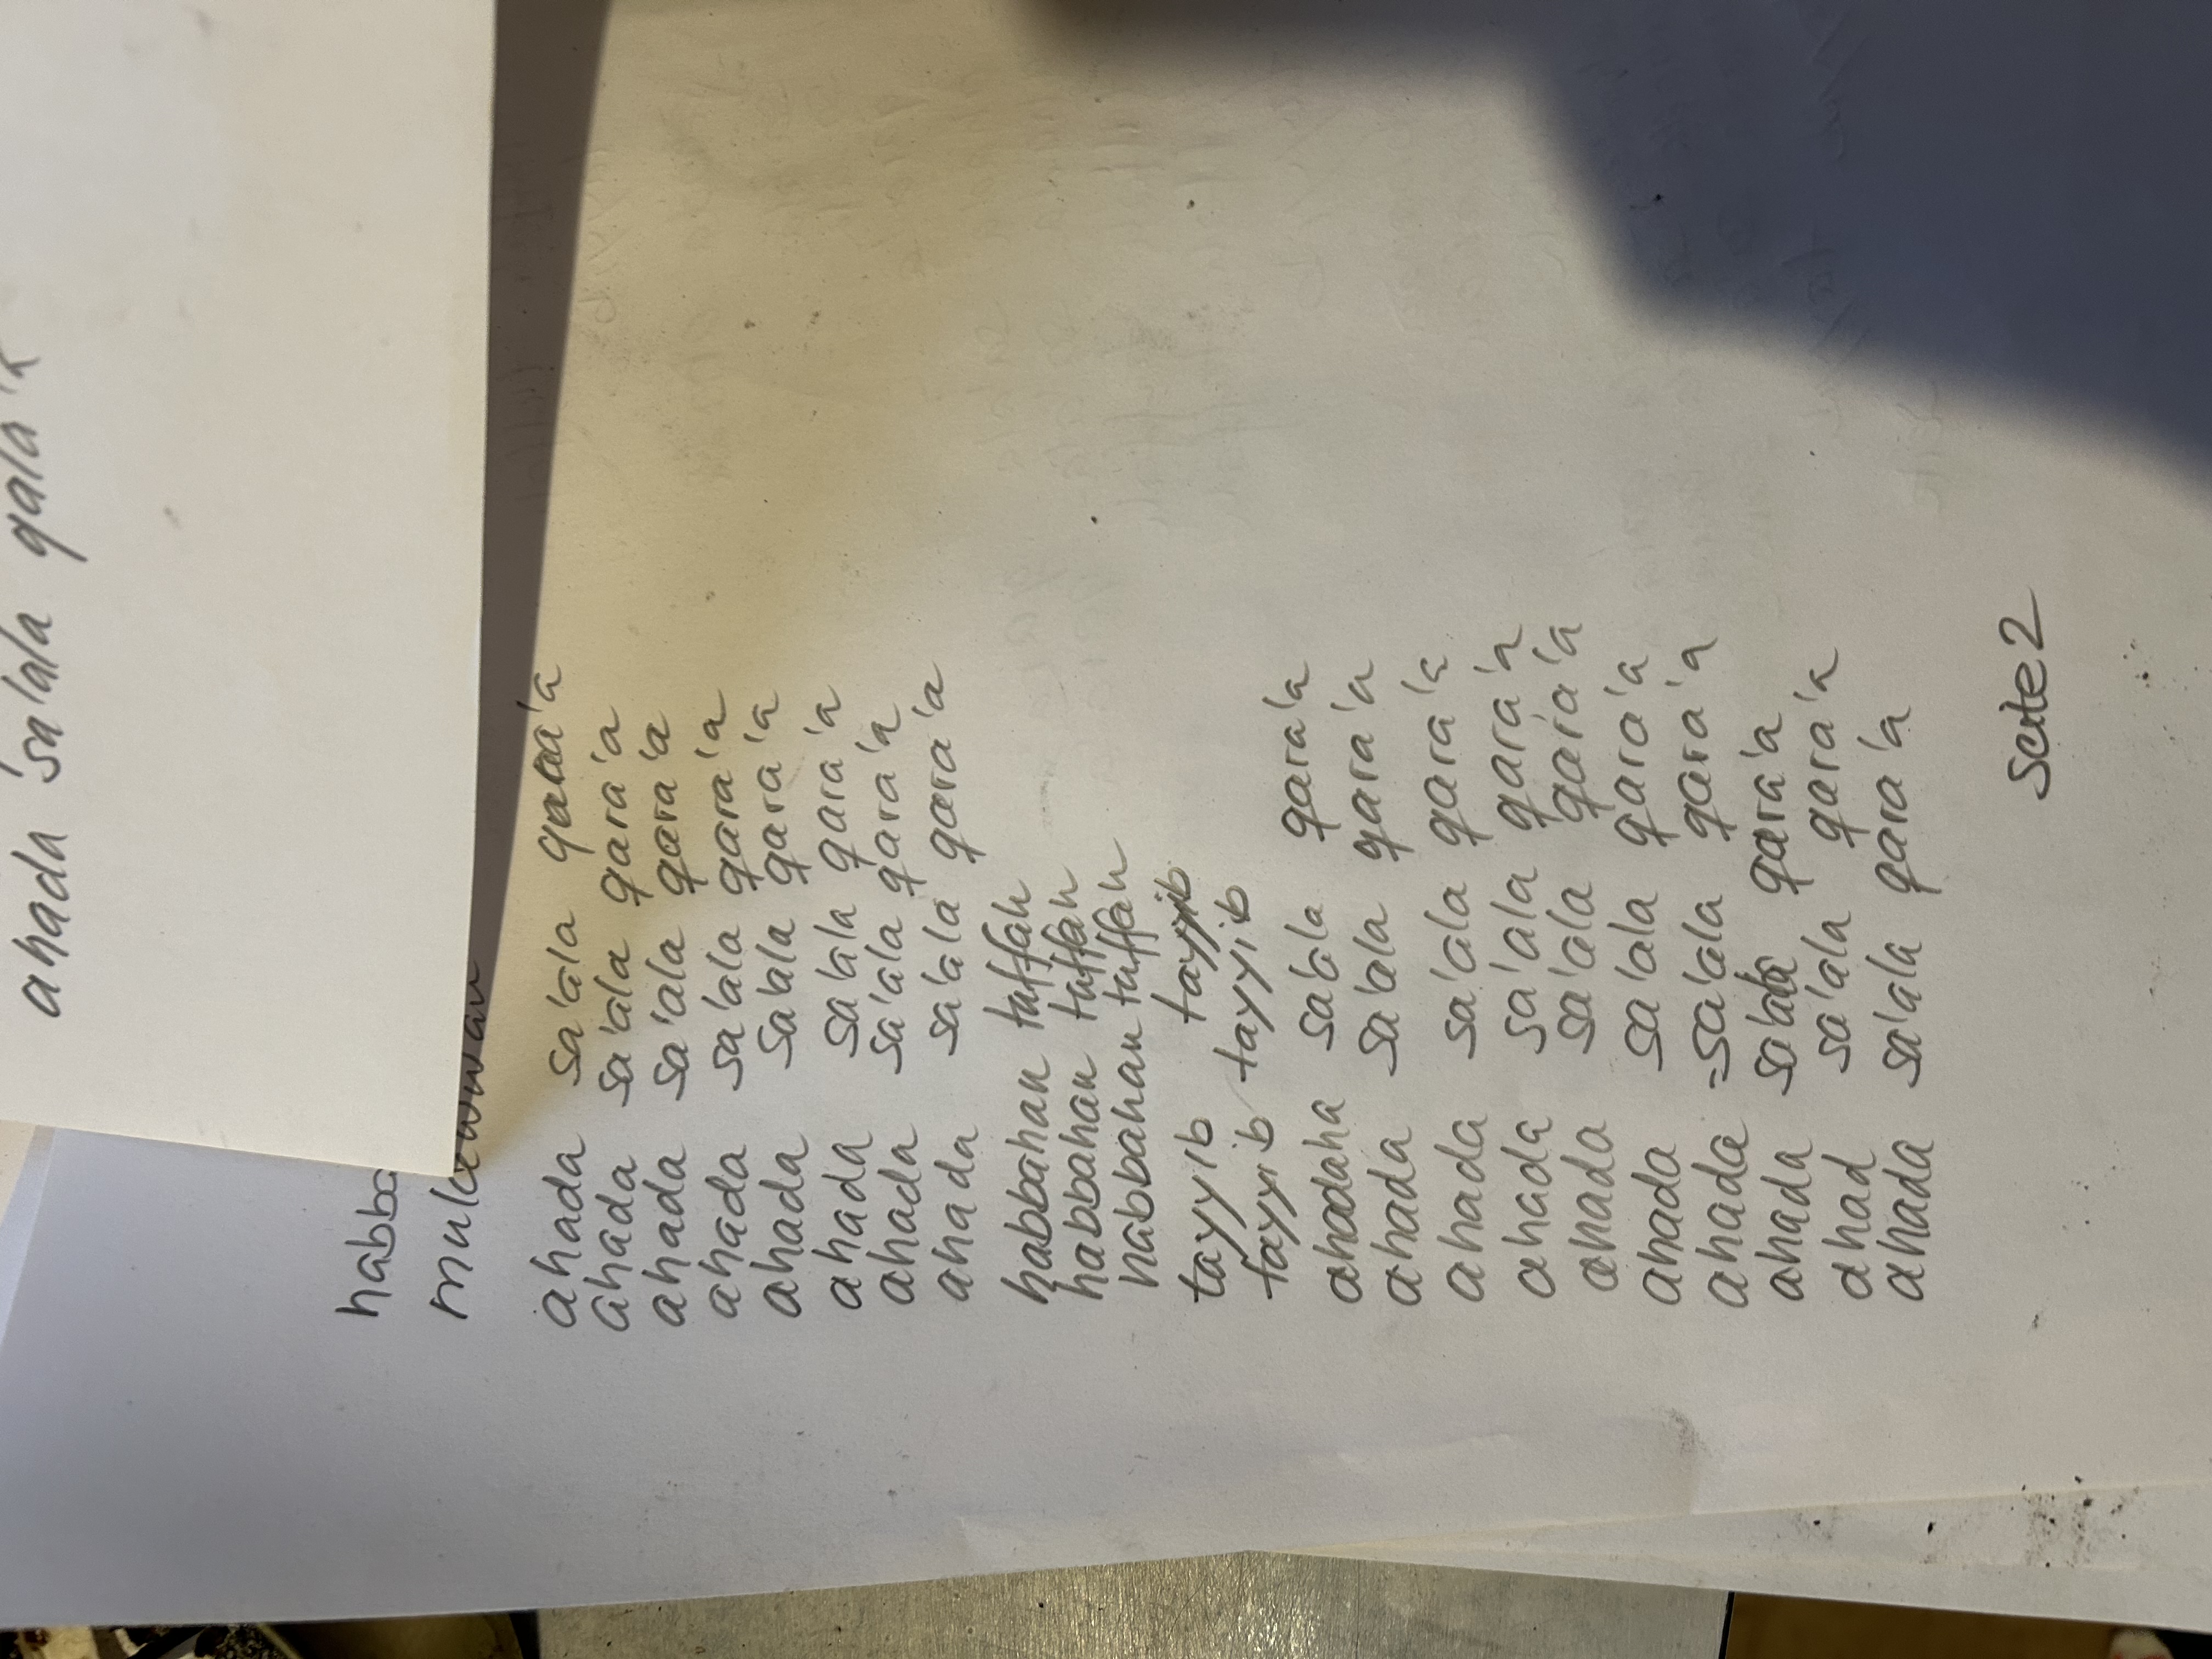 ahada sa'ala qala
habba
mula
ahada sa'ala qara'a
ahada sa'ala qara'a
ahada sa'ala qara'a
ahada sa'ala qara'a
ahada sa'ala qara'a
ahada sa'ala qara'a
ahada sa'ala qara'a
ahada sa'ala qara'a
habbahan tuffah
habbahan tuffah
habbahan tuffah
tayyib tayyib
tayyib tayyib
ahadaha sa'ala qara'a
ahada sa'ala qara'a
ahada sa'ala qara'a
ahada sa'ala qara'a
ahada sa'ala qara'a
ahada sa'ala qara'a
ahada sa'ala qara'a
ahada sa'ala qara'a
ahad sa'ala qara'a
ahada sa'ala qara'a
Seite 2